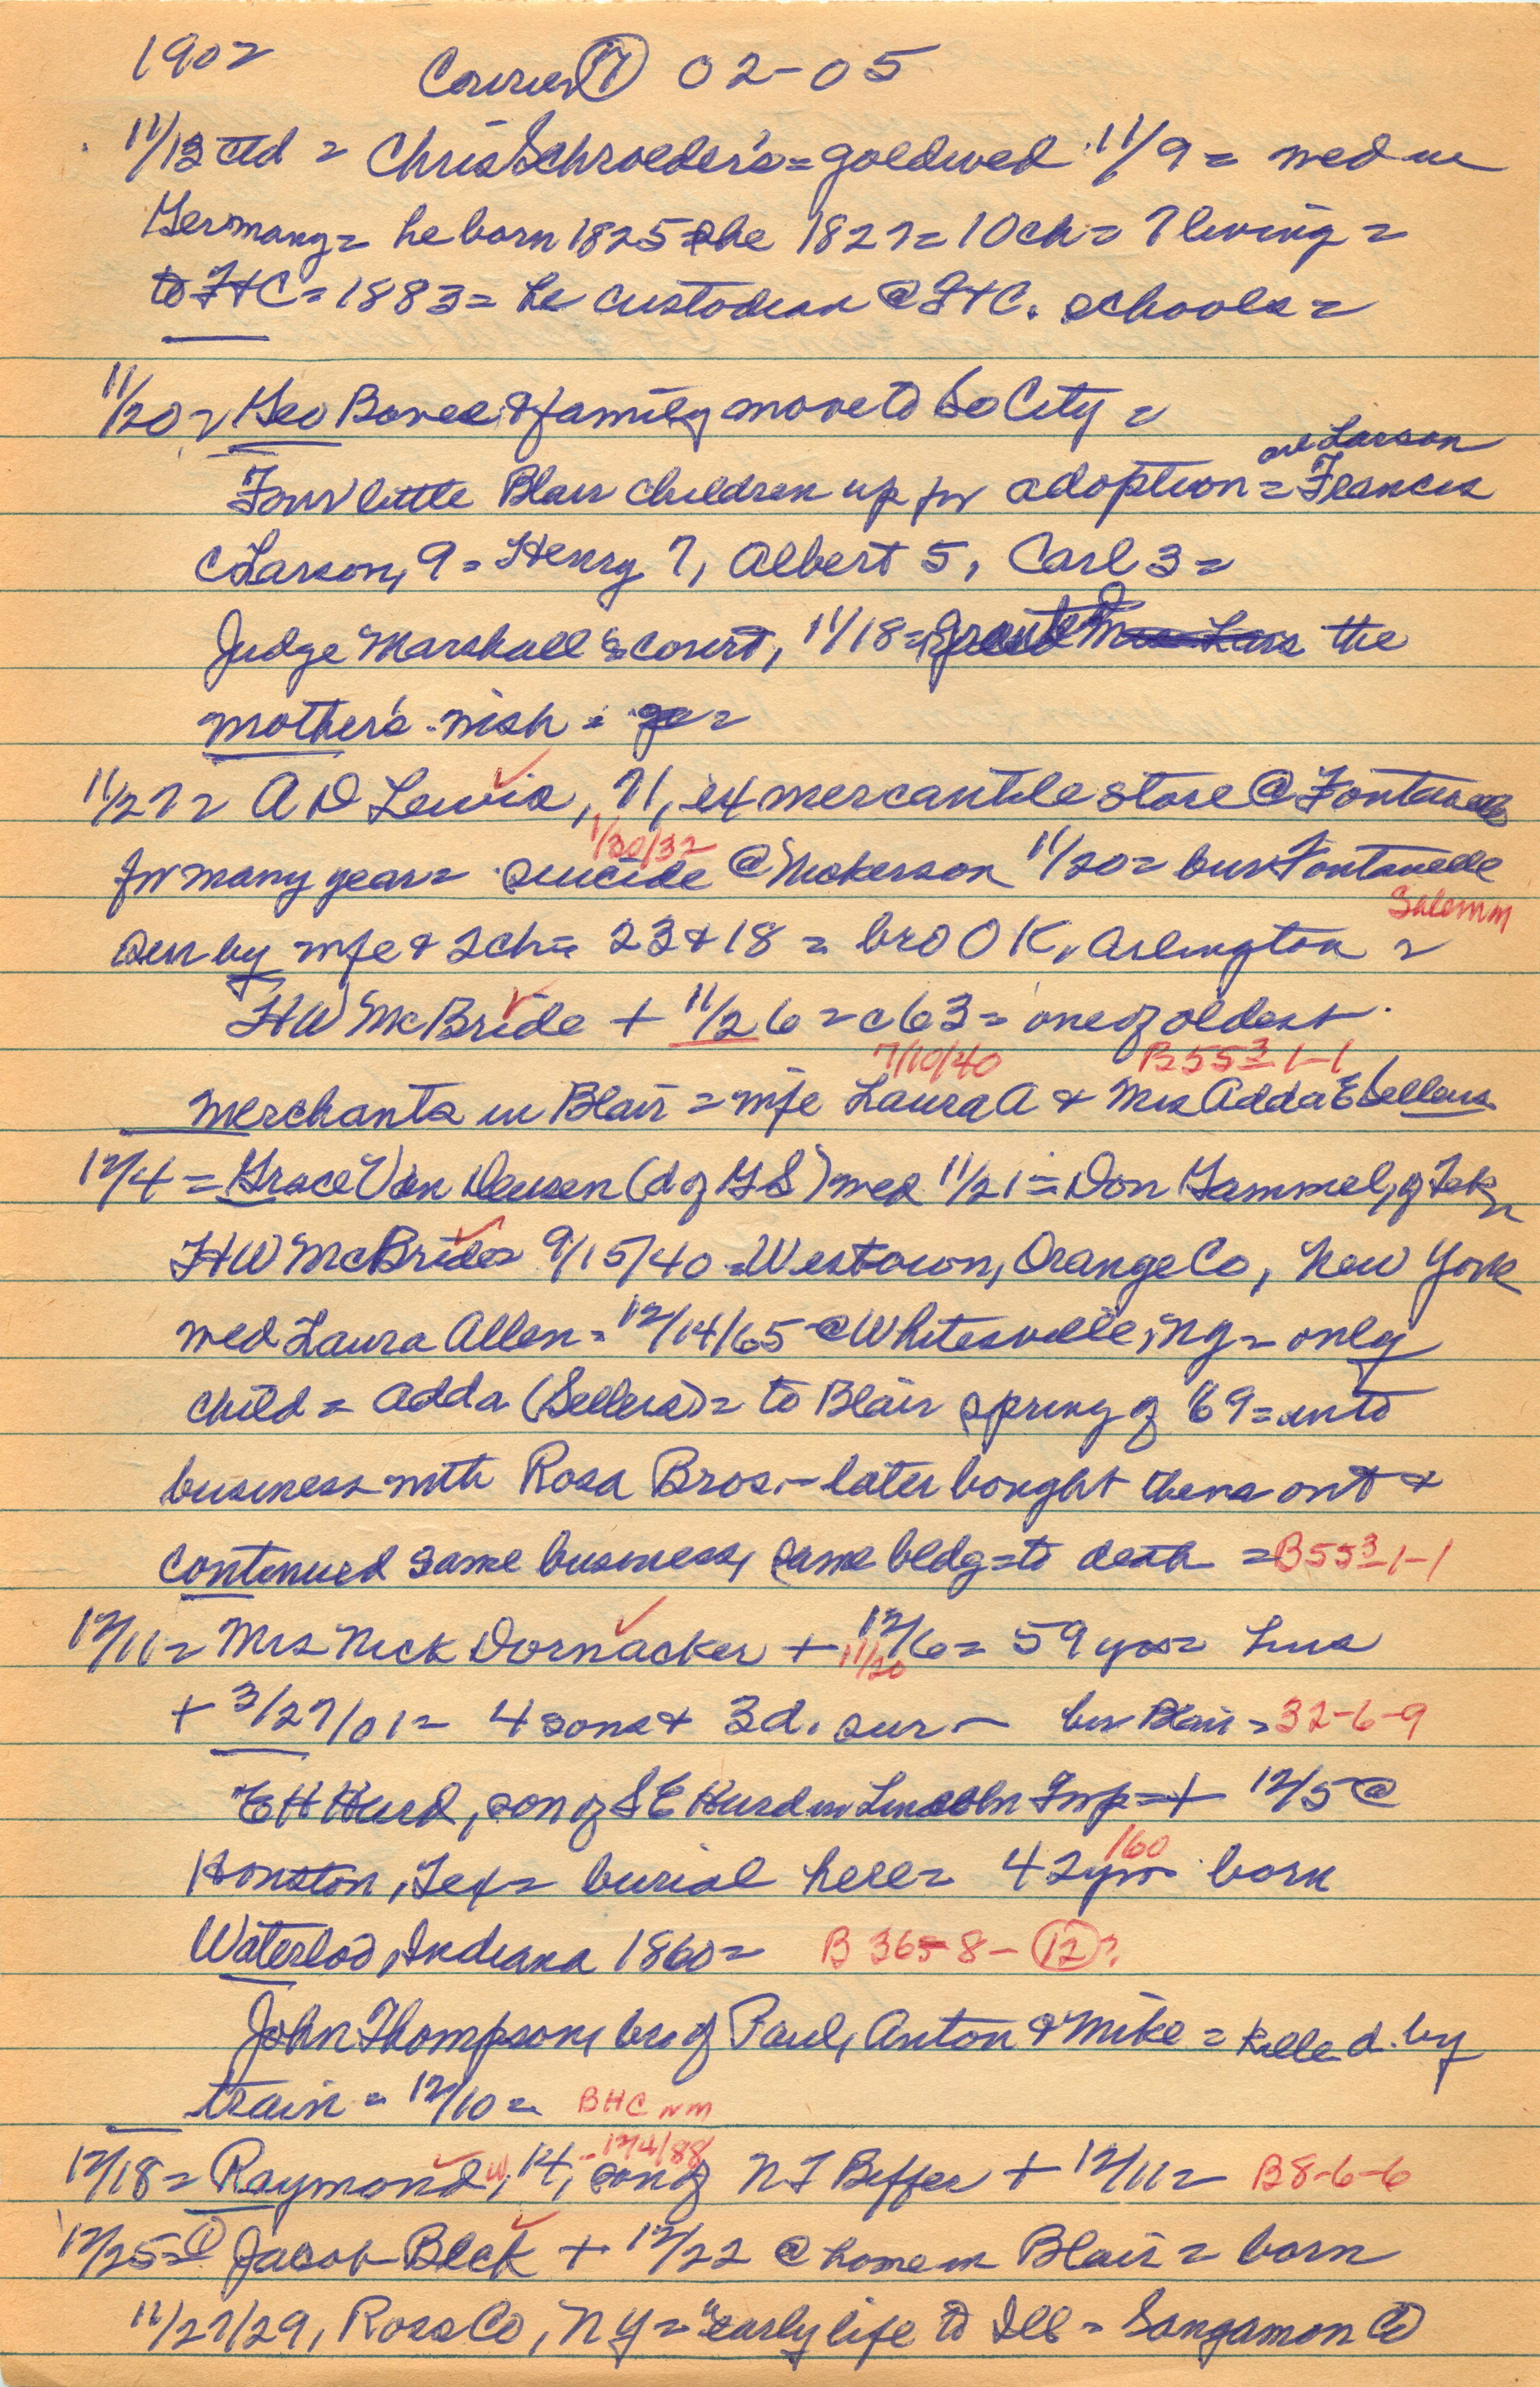 1902 Courier (17) 02-05
11/13 ctd = Chris Schroeder's = goldwed 11/9 = wed in
Germany = he born 1825 = she 1827 = 10 ch = 7 living =
to FtC = 1883 = he custodian @ FtC. schools =
11/20 = Geo Bovee & family move to So City =
are Larson
Four little Blair children up for adoption = Frances
C Larson, 9 = Henry 7, Albert 5, Carl 3 =
Judge Marshall's court, 11/18 = granted the
mother's wish =
11/27 = A D Lewis, 71, ex mercantile store @ Fontanelle
1/30/32
for many years = suicide @ Nickerson 11/20 = bur Fontanelle
Salem nm
sur by wife & 2 ch = 23 & 18 = bro O K, Arlington =
HW McBride + 11/26 = c63 = one of oldest
7/10/40 B55 3 1-1
merchants in Blair = wife Laura A & Mrs Adda E Sellers
12/4 = Grace Van Deusen (d of G S) wed 11/21 = Don Gammel, of Tek =
HW McBride = 9/15/40 = Westown, Orange Co, New York
wed Laura Allen = 12/14/65 @ Whitesville, NY = only
child = Adda (Sellers) = to Blair spring of '69 = into
business with Rosa Bros. - later bought them out &
continued same business, same bldg = to death = B55 3 1-1
12/11 = Mrs Nick Dornacker + 12/6 = 59 yrs = hus
11/20
+ 3/27/01 = 4 sons & 3 d. sur - bur Blair = 32-6-9
E H Hurd, son of S E Hurd in Lincoln Twp = + 12/5 @
160
Houston, Tex = burial here = 42 yrs born
Waterloo, Indiana 1860 = B 365-8-(12)?
John Thompson, bro of Paul, Anton & Mike = killed by
train = 12/10 = BHC nm
12/4/88
12/18 = Raymond W, 14, son of N T Beffer + 12/11 = B8-6-6
12/25 = (1) Jacob Beck + 12/22 @ home in Blair = born
11/27/29, Ross Co, NY = "early life to Ill = Sangamon Co